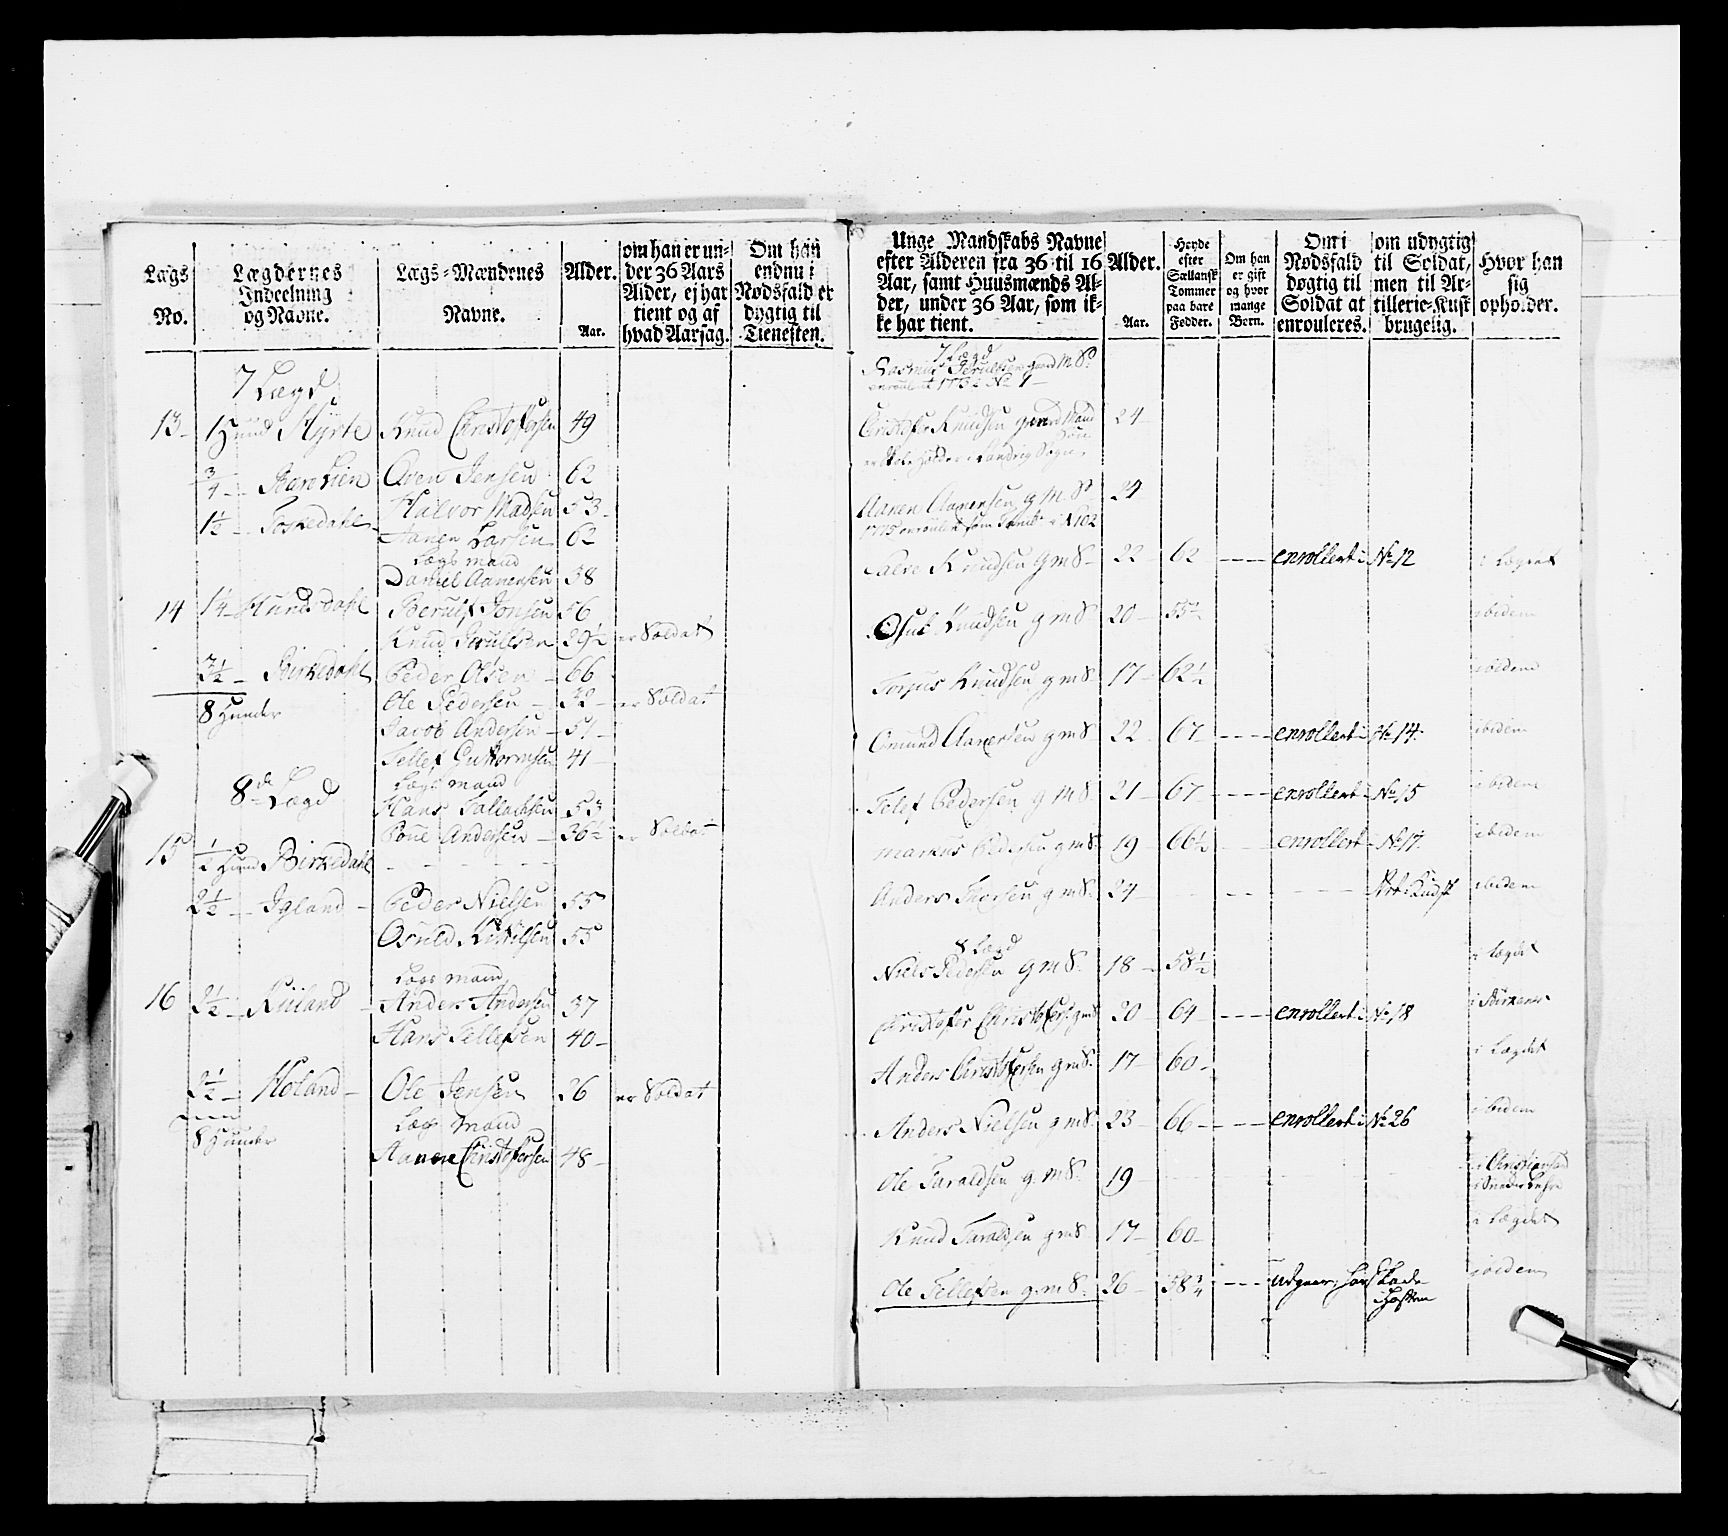 Lægs No.
Lægdernes Indeelning og Navne.
Lægs-Mændenes Navne.
Alder. Aar.
om han er under 36 Aars Alder, ej har tient og af hvad Aarsag.
Om han endnu i Nødsfald er dygtig til Tienesten.
7 Lægd
13 1 Hund Myrte Knud Christoffersen 49
3/4 Aven Jensen 62
1 1/2 Toskedahl Halvor Madsen 53
Aanen Larsen 62
Lægs mand
Daniel Aanensen 38
14 1 1/4 Hundsdahl Berulf Jonsen 56
Knud Berulfsen 29 1/2 er Soldat
3 1/2 Birkedahl Peder Olsen 66
Ole Pedersen 32 er Soldat
8 Hunder
Jacob Andersen 51
Tellef Guttormsen 41
Lægs mand
8de Lægd
Hans Tallachsen 53
Poul Andersen 36 1/2 er Soldat
15 1/2 Hund Birkedahl
2 1/2 Igland Peder Nielsen 55
Osuld Kittilsen 55
Lægs mand
16 2 1/2 Riiland Anders Andersen 37
Hans Tellefsen 40
2 1/2 Høland Ole Jensen 26 er Soldat
Lægs mand
8 Hunder
Aanen Christofersen 48
Unge Mandskabs Navne efter Alderen fra 36 til 16 Aar, samt Huusmænds Alder, under 36 Aar, som ikke har tient.
Alder. Aar.
Høyde efter Sællansk Tommer paa bare Fødder.
Om han er gift og hvor mange Børn.
Om i Nødsfald dogtig til Soldat at enrouleres.
om udygtig til Soldat, men til Artillerie-Kusk brugelig.
Hvor han sig opholder.
7 Lægd
Rasmus Berulfsen gaard M S.
Christofer Knudsen gaard Mand Søn 24
Aanen Aanensen g M. S. 24
Salve Knudsen g m S 22 62 enrollert i No 12 i Lægdet
Osul Knudsen g m S 20 55 1/2 ibidem
Torjus Knudsen g m S 17 62 1/2 ibidem
Omund Aanensen g m S 22 67 enrollert i No 14. ibidem
Tolef Pedersen g M S 21 67 enrollert No 15 ibidem
Markus Pedersen g m S. 19 66 1/2 enrollert No 17. ibidem
Anders Thorsen g m S. 24 Art: Kudsk ibidem
8 Lægd
Niels Pedersen g m S. 18 58 1/2 i Lægdet
Christofer Christofers: g m S 20 64 enrollert i No 18 i Birkenes
Anders Christofersen g m S. 17 60 i Lægdet
Anders Nielsen g m S. 23 66 enrollert i No 26 ibidem
Ole Taraldsen g. m S. 19 i Christiansand
Knud Taraldsen g m S 17 60 i Lægdet
Ole Tellefsen g. m S. 26 58 3/4 udgaar, har Skade i Hoften ibidem